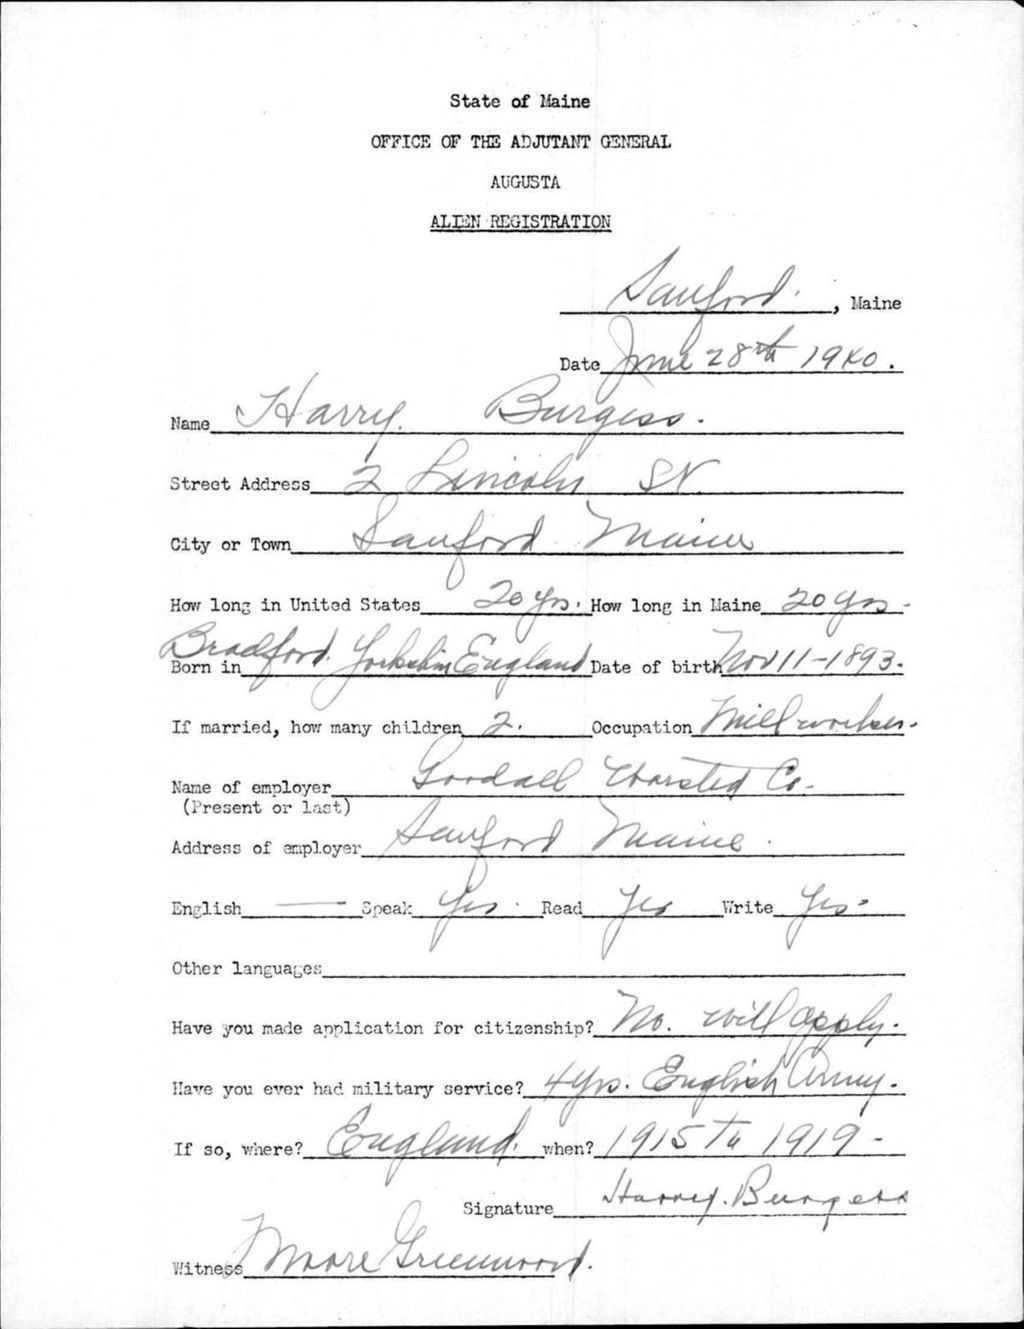 State of Maine
OFFICE OF THE ADJUTANT GENERAL
AUGUSTA
ALIEN REGISTRATION
Sanford, Maine
Date June 28th 1940.
Name Harry Burgess.
Street Address 2 Lincoln St
City or Town Sanford Maine
How long in United States 20 yrs. How long in Maine 20 yrs -
Born in Bradford. Yorkshire England Date of birth Nov 11-1893.
If married, how many children 2. Occupation Mill worker.
Name of employer Goodall Worsted Co.
(Present or last)
Address of employer Sanford Maine.
English — Speak Yes. Read Yes Write Yes-
Other languages
Have you made application for citizenship? No. will apply.
Have you ever had military service? 4 yrs. English Army.
If so, where? England. when? 1915 to 1919-
Signature Harry. Burgess
Witness Moore Greenwood.